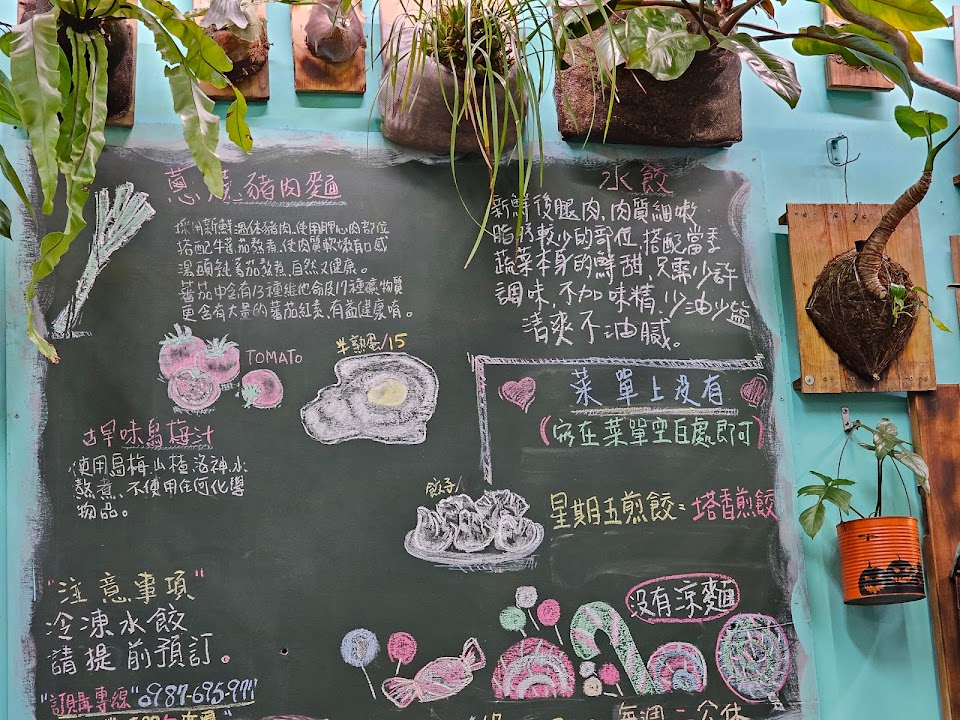 蔥燒豬肉麵
採用新鮮溫体豬肉,使用胛心肉部位
搭配牛蕃茄熬煮,使肉質軟嫩有口感
湯頭純蕃茄熬煮、自然又健康。
蕃茄中含有13種維他命及17種礦物質
更含有大量的蕃茄紅素,有益健康唷。
TOMATO
半熟蛋/15
古早味烏梅汁
使用烏梅,山楂,洛神,水
熬煮、不使用任何化學
物品。
"注意事項"
冷凍水餃
請提前預訂。
"訂購專線" 0987-695-971
水餃
新鮮後腿肉,肉質細嫩
脂肪較少的部位,搭配當季
蔬菜本身的鮮甜,只需少許
調味,不加味精,少油少鹽
清爽不油膩。
菜單上沒有
(寫在菜單空白處即可)
餃子
星期五煎餃=塔香煎餃
沒有涼麵
每週二公休